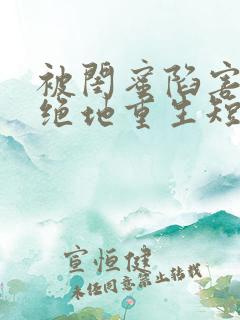 被闺蜜陷害
绝地重生短
宣恒健
未经同意禁止转载